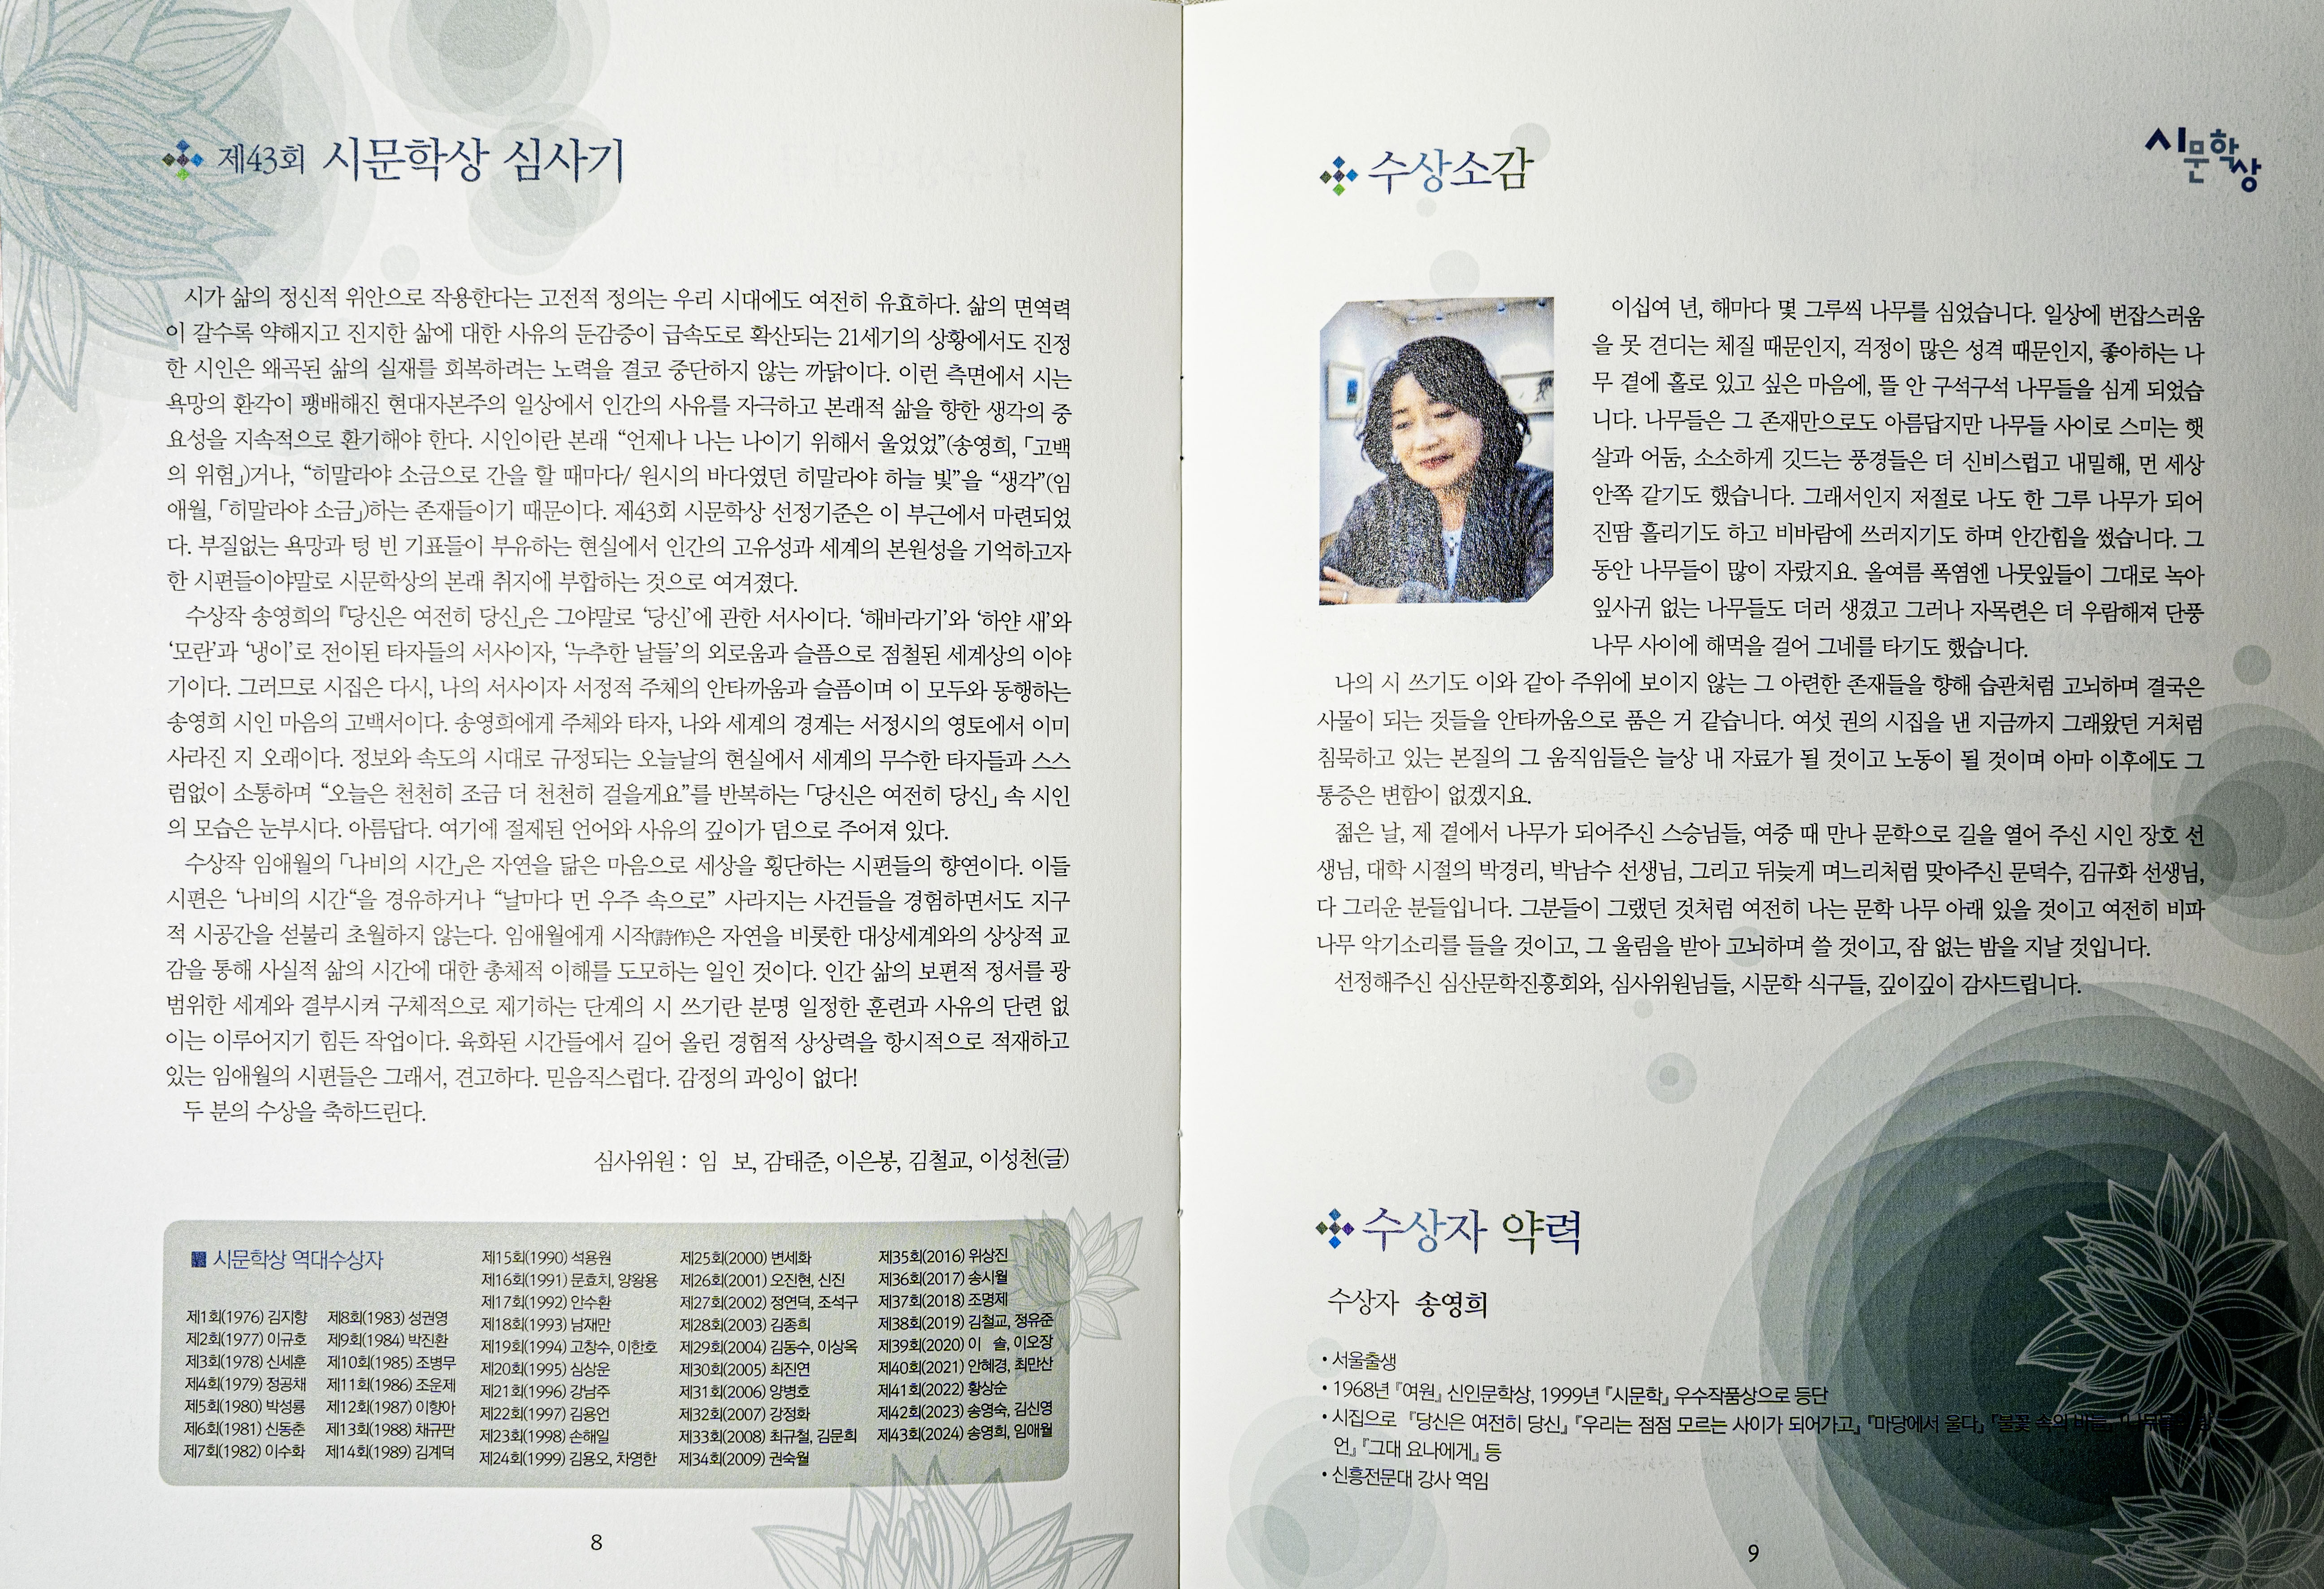 제43회 시문학상 심사기
시가 삶의 정신적 위안으로 작용한다는 고전적 정의는 우리 시대에도 여전히 유효하다. 삶의 면역력
이 갈수록 약해지고 진지한 삶에 대한 사유의 둔감증이 급속도로 확산되는 21세기의 상황에서도 진정
한 시인은 왜곡된 삶의 실재를 회복하려는 노력을 결코 중단하지 않는 까닭이다. 이런 측면에서 시는
욕망의 환각이 팽배해진 현대자본주의 일상에서 인간의 사유를 자극하고 본래적 삶을 향한 생각의 중
요성을 지속적으로 환기해야 한다. 시인이란 본래 “언제나 나는 나이기 위해서 울었었”(송영희, 「고백
의 위험」)거나, “히말라야 소금으로 간을 할 때마다/ 원시의 바다였던 히말라야 하늘 빛”을 “생각”(임
애월, 「히말라야 소금」)하는 존재들이기 때문이다. 제43회 시문학상 선정기준은 이 부근에서 마련되었
다. 부질없는 욕망과 텅 빈 기표들이 부유하는 현실에서 인간의 고유성과 세계의 본원성을 기억하고자
한 시편들이야말로 시문학상의 본래 취지에 부합하는 것으로 여겨졌다.
수상작 송영희의 『당신은 여전히 당신」은 그야말로 ‘당신’에 관한 서사이다. ‘해바라기’와 ‘하얀 새’와
‘모란’과 ‘냉이’로 전이된 타자들의 서사이자, ‘누추한 날들’의 외로움과 슬픔으로 점철된 세계상의 이야
기이다. 그러므로 시집은 다시, 나의 서사이자 서정적 주체의 안타까움과 슬픔이며 이 모두와 동행하는
송영희 시인 마음의 고백서이다. 송영희에게 주체와 타자, 나와 세계의 경계는 서정시의 영토에서 이미
사라진 지 오래이다. 정보와 속도의 시대로 규정되는 오늘날의 현실에서 세계의 무수한 타자들과 스스
럼없이 소통하며 “오늘은 천천히 조금 더 천천히 걸을게요”를 반복하는 「당신은 여전히 당신」 속 시인
의 모습은 눈부시다. 아름답다. 여기에 절제된 언어와 사유의 깊이가 덤으로 주어져 있다.
수상작 임애월의 「나비의 시간」은 자연을 닮은 마음으로 세상을 횡단하는 시편들의 향연이다. 이들
시편은 ‘나비의 시간“을 경유하거나 “날마다 먼 우주 속으로” 사라지는 사건들을 경험하면서도 지구
적 시공간을 섣불리 초월하지 않는다. 임애월에게 시작(詩作)은 자연을 비롯한 대상세계와의 상상적 교
감을 통해 사실적 삶의 시간에 대한 총체적 이해를 도모하는 일인 것이다. 인간 삶의 보편적 정서를 광
범위한 세계와 결부시켜 구체적으로 제기하는 단계의 시 쓰기란 분명 일정한 훈련과 사유의 단련 없
이는 이루어지기 힘든 작업이다. 육화된 시간들에서 길어 올린 경험적 상상력을 항시적으로 적재하고
있는 임애월의 시편들은 그래서, 견고하다. 믿음직스럽다. 감정의 과잉이 없다!
두 분의 수상을 축하드린다.
심사위원 : 임 보, 감태준, 이은봉, 김철교, 이성천(글)
■ 시문학상 역대수상자
제1회(1976) 김지향
제2회(1977) 이규호
제3회(1978) 신세훈
제4회(1979) 정공채
제5회(1980) 박성룡
제6회(1981) 신동춘
제7회(1982) 이수화
제8회(1983) 성권영
제9회(1984) 박진환
제10회(1985) 조병무
제11회(1986) 조운제
제12회(1987) 이향아
제13회(1988) 채규판
제14회(1989) 김계덕
제15회(1990) 석용원
제16회(1991) 문효치, 양왕용
제17회(1992) 안수환
제18회(1993) 남재만
제19회(1994) 고창수, 이한호
제20회(1995) 심상운
제21회(1996) 강남주
제22회(1997) 김용언
제23회(1998) 손해일
제24회(1999) 김용오, 차영한
제25회(2000) 변세화
제26회(2001) 오진현, 신진
제27회(2002) 정연덕, 조석구
제28회(2003) 김종희
제29회(2004) 김동수, 이상옥
제30회(2005) 최진연
제31회(2006) 양병호
제32회(2007) 강정화
제33회(2008) 최규철, 김문희
제34회(2009) 권숙월
제35회(2016) 위상진
제36회(2017) 송시월
제37회(2018) 조명제
제38회(2019) 김철교, 정유준
제39회(2020) 이 솔, 이오장
제40회(2021) 안혜경, 최만산
제41회(2022) 황상순
제42회(2023) 송영숙, 김신영
제43회(2024) 송영희, 임애월
8
시문학상
수상소감
이십여 년, 해마다 몇 그루씩 나무를 심었습니다. 일상에 번잡스러움
을 못 견디는 체질 때문인지, 걱정이 많은 성격 때문인지, 좋아하는 나
무 곁에 홀로 있고 싶은 마음에, 뜰 안 구석구석 나무들을 심게 되었습
니다. 나무들은 그 존재만으로도 아름답지만 나무들 사이로 스미는 햇
살과 어둠, 소소하게 깃드는 풍경들은 더 신비스럽고 내밀해, 먼 세상
안쪽 같기도 했습니다. 그래서인지 저절로 나도 한 그루 나무가 되어
진땀 흘리기도 하고 비바람에 쓰러지기도 하며 안간힘을 썼습니다. 그
동안 나무들이 많이 자랐지요. 올여름 폭염엔 나뭇잎들이 그대로 녹아
잎사귀 없는 나무들도 더러 생겼고 그러나 자목련은 더 우람해져 단풍
나무 사이에 해먹을 걸어 그네를 타기도 했습니다.
나의 시 쓰기도 이와 같아 주위에 보이지 않는 그 아련한 존재들을 향해 습관처럼 고뇌하며 결국은
사물이 되는 것들을 안타까움으로 품은 거 같습니다. 여섯 권의 시집을 낸 지금까지 그래왔던 거처럼
침묵하고 있는 본질의 그 움직임들은 늘상 내 자료가 될 것이고 노동이 될 것이며 아마 이후에도 그
통증은 변함이 없겠지요.
젊은 날, 제 곁에서 나무가 되어주신 스승님들, 여중 때 만나 문학으로 길을 열어 주신 시인 장호 선
생님, 대학 시절의 박경리, 박남수 선생님, 그리고 뒤늦게 며느리처럼 맞아주신 문덕수, 김규화 선생님,
다 그리운 분들입니다. 그분들이 그랬던 것처럼 여전히 나는 문학 나무 아래 있을 것이고 여전히 비파
나무 악기소리를 들을 것이고, 그 울림을 받아 고뇌하며 쓸 것이고, 잠 없는 밤을 지날 것입니다.
선정해주신 심산문학진흥회와, 심사위원님들, 시문학 식구들, 깊이깊이 감사드립니다.
수상자 약력
수상자 송영희
• 서울출생
• 1968년 『여원』 신인문학상, 1999년 『시문학』 우수작품상으로 등단
• 시집으로 『당신은 여전히 당신』 『우리는 점점 모르는 사이가 되어가고』 『마당에서 울다』 『불꽃 속의 바늘』
언』 『그대 요나에게』 등
• 신흥전문대 강사 역임
9